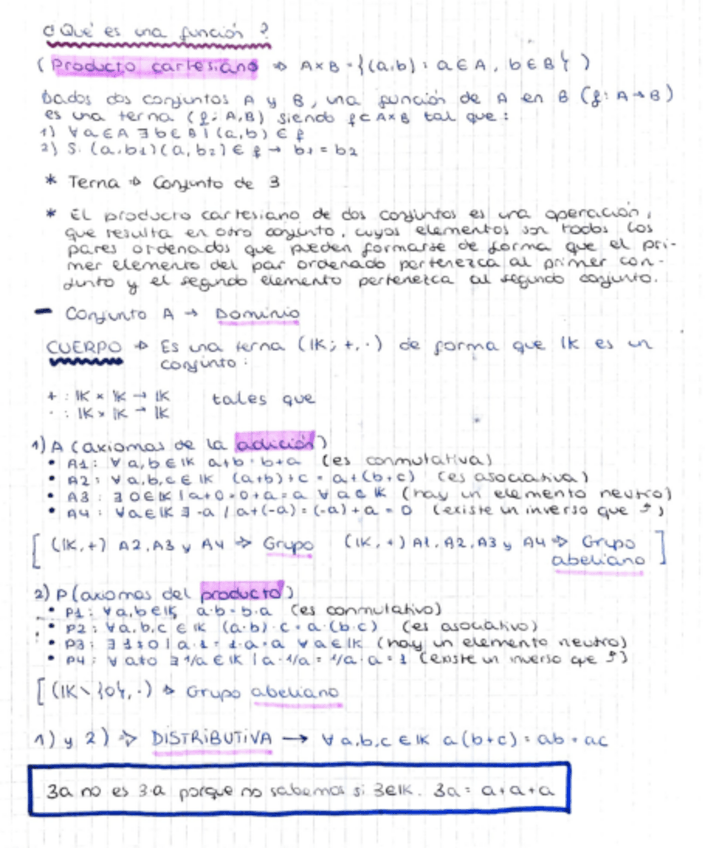 ¿Qué es una función?
(Producto cartesiano ⇒ A×B = {(a,b) : a∈A, b∈B})
Dados dos conjuntos A y B, una función de A en B (f: A→B)
es una terna (f; A,B) siendo f⊂A×B tal que:
1) ∀a∈A ∃b∈B | (a,b) ∈ f
2) Si (a,b1)(a,b2) ∈ f → b1 = b2
* Terna ⇒ Conjunto de 3
* El producto cartesiano de dos conjuntos es una operación,
que resulta en otro conjunto, cuyos elementos son todos los
pares ordenados que pueden formarse de forma que el pri-
mer elemento del par ordenado pertenezca al primer con-
junto y el segundo elemento pertenezca al segundo conjunto.
– Conjunto A → Dominio
CUERPO ⇒ Es una terna (IK; +, ·) de forma que IK es un
conjunto:
+ : IK × IK → IK tales que
· : IK × IK → IK
1) A (axiomas de la adición)
• A1: ∀a,b∈IK a+b = b+a (es conmutativa)
• A2: ∀a,b,c∈IK (a+b)+c = a+(b+c) (es asociativa)
• A3: ∃ 0∈IK | a+0=0+a=a ∀a∈IK (hay un elemento neutro)
• A4: ∀a∈IK ∃ -a / a+(-a) = (-a)+a = 0 (existe un inverso que ↑)
[(IK,+) A2, A3 y A4 ⇒ Grupo (IK,+) A1, A2, A3 y A4 ⇒ Grupo
abeliano]
2) P (axiomas del producto)
• P1: ∀a,b∈IK a·b = b·a (es conmutativo)
• P2: ∀a,b,c ∈ IK (a·b)·c = a·(b·c) (es asociativo)
• P3: ∃ 1≠0 | a·1 = 1·a = a ∀a∈IK (hay un elemento neutro)
• P4: ∀a≠0 ∃ 1/a ∈ IK | a·1/a = 1/a·a = 1 (existe un inverso que ↑)
[(IK\{0}, ·) ⇒ Grupo abeliano
1) y 2) ⇒ DISTRIBUTIVA → ∀a,b,c∈IK a(b+c) = ab+ac
3a no es 3·a porque no sabemos si 3∈IK. 3a = a+a+a